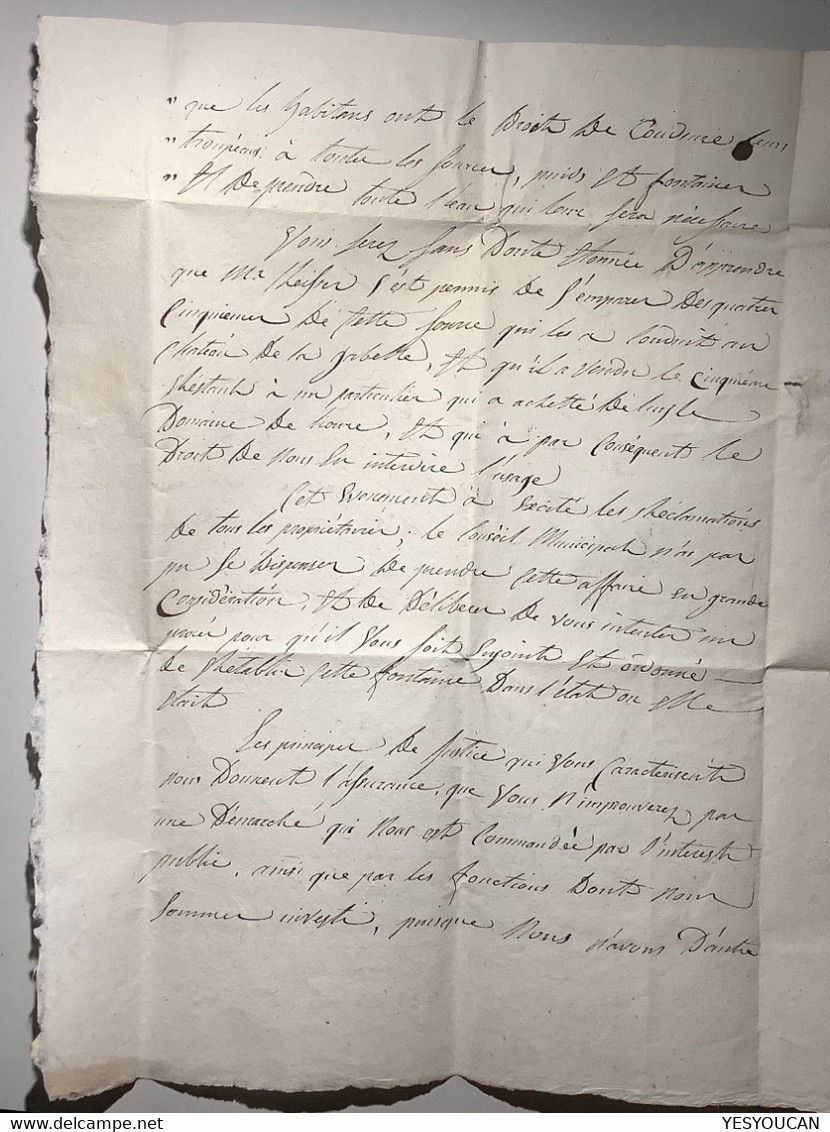 " que les habitans ont le Droit De Conduire leurs
" troupeaux à toutes les sources, puids Et fontaines
" Et De prendre toute l'eau qui leur sera nécessaire
Vous serez sans Doute Etonnée D'apprendre
que Mr s'est permis De s'emparer Des quatre
Cinquiemes De Cette source qui les a Conduit au
Chateau De la , Et qu'il a vendu le Cinquième
Restant à un particulier qui a achetté De le
Domaine De , Et qui à par Conséquent le
Droit De nous En interdire l'usage
Cet Evenement à Excité les Réclamations
De tous les propriétaires, le Conseil Municipal n'as pas
pu se Dispenser De prendre Cette affaire en grande
Considération, Et De Délibérer De vous intenter un
procès pour qu'il vous soit Enjoint Et ordonné
De Rétablir Cette fontaine Dans l'état ou Elle
Etait
Les principes De Justice qui vous Caracterisent
nous Donnent l'assurance que vous N'improuverez pas
une Démarche qui Nous est Commandée par l'interest
public, ainsi que par les fonctions Dont nous
sommes investi, puisque Nous n'avons D'autre
YESYOUCAN